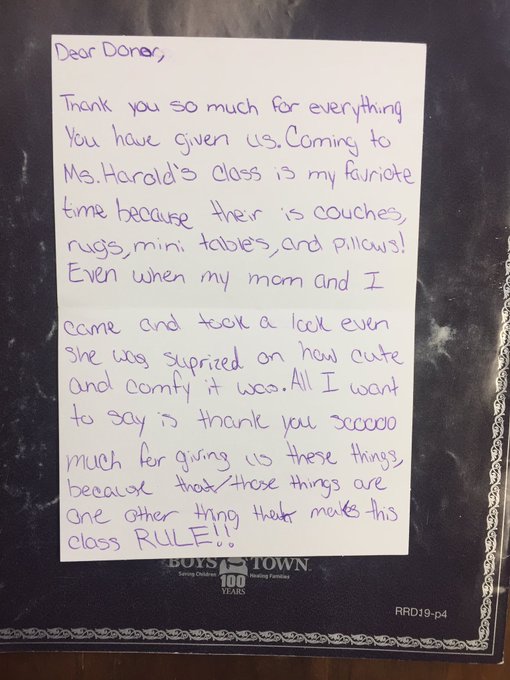 Dear Donor,
Thank you so much for everything
You have given us. Coming to
Ms. Harold's class is my favriote
time because their is couches,
rug's, mini table's, and pillows!
Even when my mom and I
came and took a look even
she was suprized on how cute
and comfy it was. All I want
to say is thank you sooooo
much for giving us these things,
because that/those things are
one other thing that makes this
class RULE!!
BOYS TOWN
Saving Children Healing Families
100
YEARS
RRD19-p4